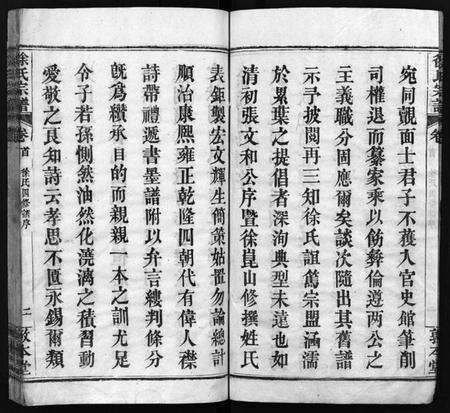 宛同覿面士君子不獲入官史館筆削
司權退而纂家乘以飭彝倫遵兩公之
主義職分固應爾矣談次隨出其舊譜
示予披閱再三知徐氏誼篤宗盟涵濡
於累葉之提倡者深洵典型未遠也如
清初張文和公序暨徐崑山修撰姓氏
表鉅製宏文輝生簡策姑置勿論總計
順治康熙雍正乾隆四朝代有偉人襟
詩帶禮遞書墨譜附以弁言縷判條分
旣爲纘承目的而親親一本之訓尤足
令子若孫惻然油然化澆漓之積習動
愛敬之良知詩云孝思不匱永錫爾類
徐氏宗譜
卷首
徐氏四修領序
二
敦本堂
徐氏宗譜
卷
敦本堂